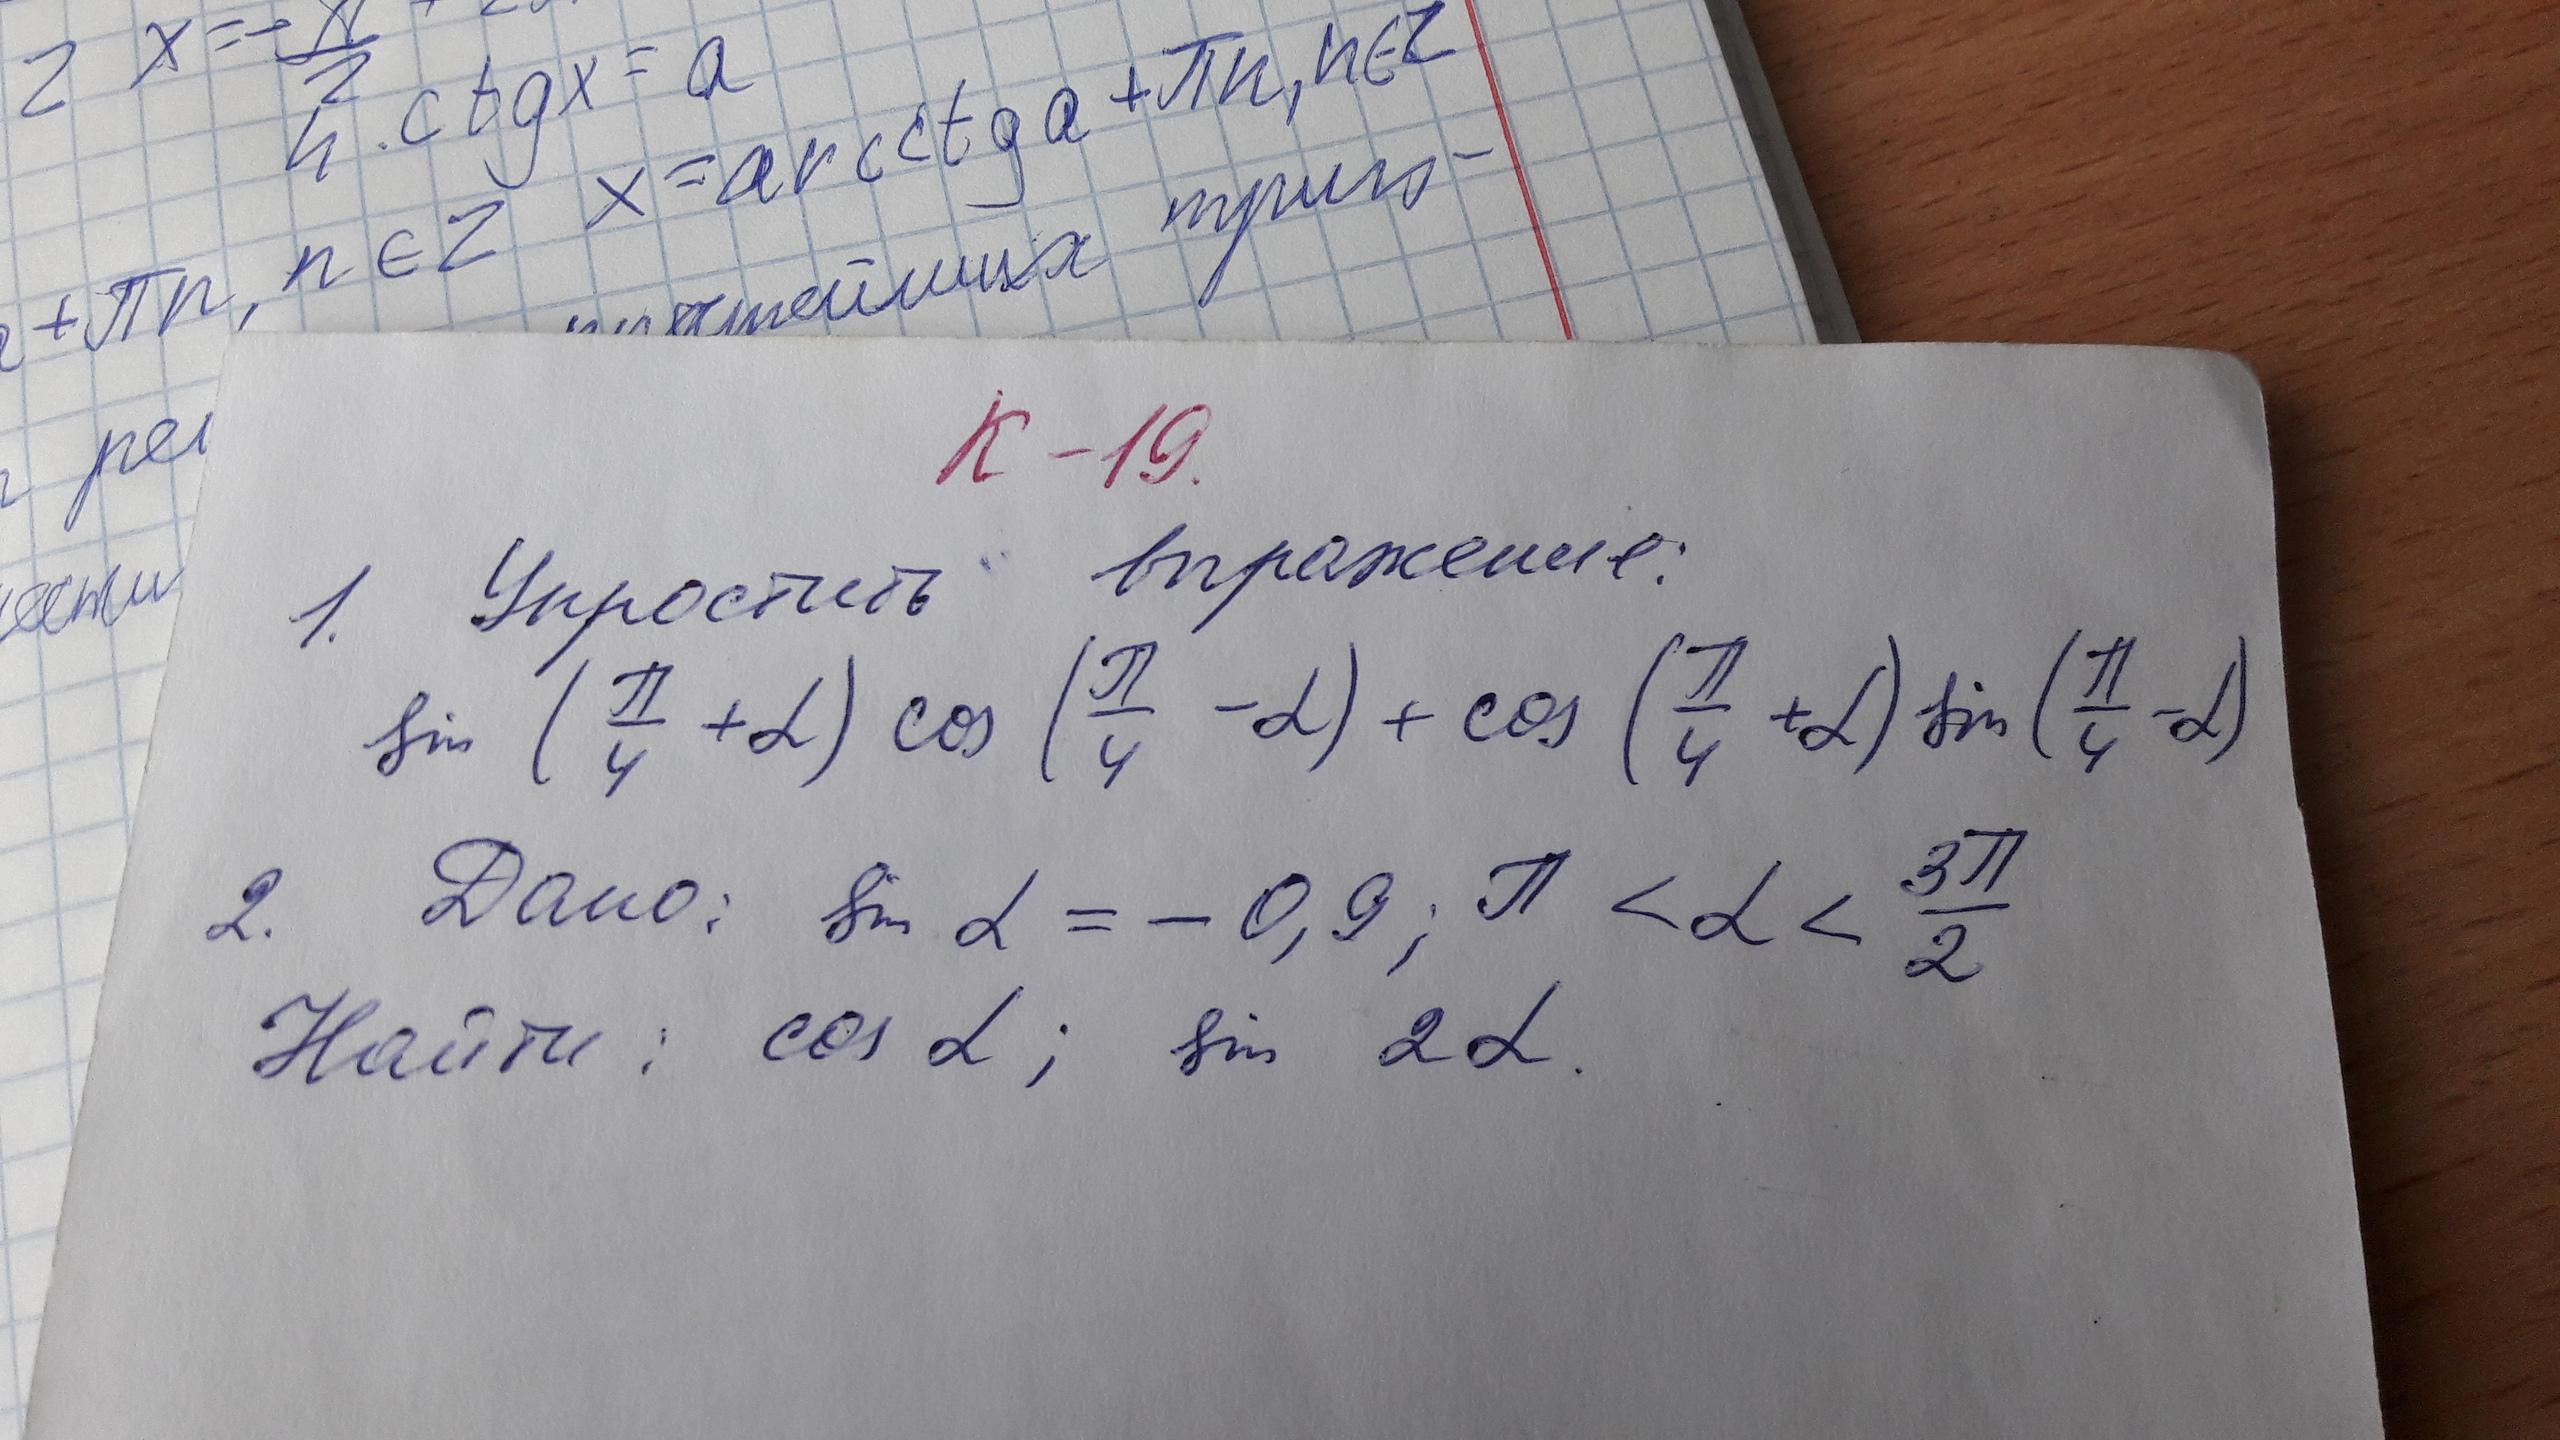 Z x=-π/2
4. ctgx = a
+πn, n∈Z x=arcctg a+πn, n∈Z
простейших триго-
К-19.
1. Упростить выражение:
sin (π/4 +α) cos (π/4 -α) + cos (π/4 +α) sin (π/4 -α)
2. Дано: sin α = -0,9; π < α < 3π/2
Найти: cos α; sin 2α.